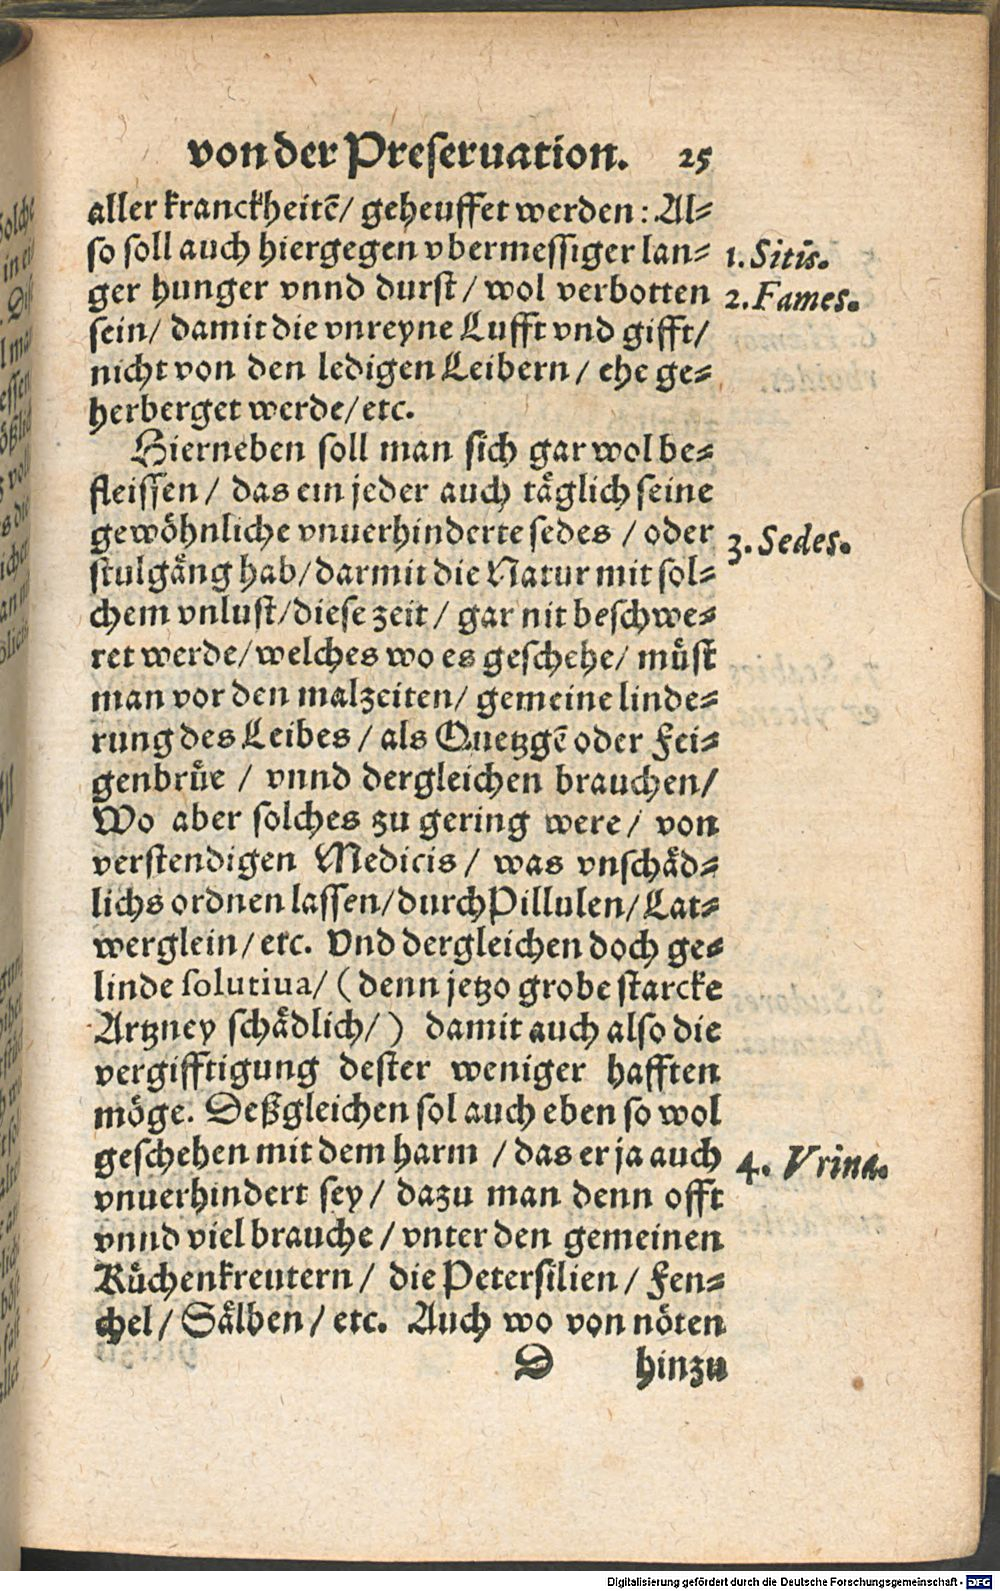 von der Preseruation. 25
aller kranckheitē/ geheuffet werden: Al⸗
so soll auch hiergegen vbermessiger lan⸗ 1. Sitis.
ger hunger vnnd durst/ wol verbotten 2. Fames.
sein/ damit die vnreyne Lufft vnd gifft/
nicht von den ledigen Leibern/ ehe ge⸗
herberget werde/ etc.
Hierneben soll man sich gar wol be⸗
fleissen/ das ein jeder auch täglich seine
gewöhnliche vnuerhinderte sedes / oder 3. Sedes.
stulgäng hab/ darmit die Natur mit sol⸗
chem vnlust/ diese zeit/ gar nit beschwe⸗
ret werde/ welches wo es geschehe/ müst
man vor den malzeiten/ gemeine linde⸗
rung des Leibes/ als Quetzgē oder Fei⸗
genbrüe / vnnd dergleichen brauchen/
Wo aber solches zu gering were/ von
verstendigen Medicis/ was vnschäd⸗
lichs ordnen lassen/ durch Pillulen/ Lat⸗
werglein/ etc. Vnd dergleichen doch ge⸗
linde solutiua/ (denn jetzo grobe starcke
Artzney schädlich/) damit auch also die
vergifftigung dester weniger hafften
möge. Deßgleichen sol auch eben so wol
geschehen mit dem harm / das er ja auch 4. Vrina.
vnuerhindert sey/ dazu man denn offt
vnnd viel brauche/ vnter den gemeinen
Küchenkreutern/ die Petersilien/ Fen⸗
chel/ Sälben/ etc. Auch wo von nöten
D hinzu
Digitalisierung gefördert durch die Deutsche Forschungsgemeinschaft - DFG